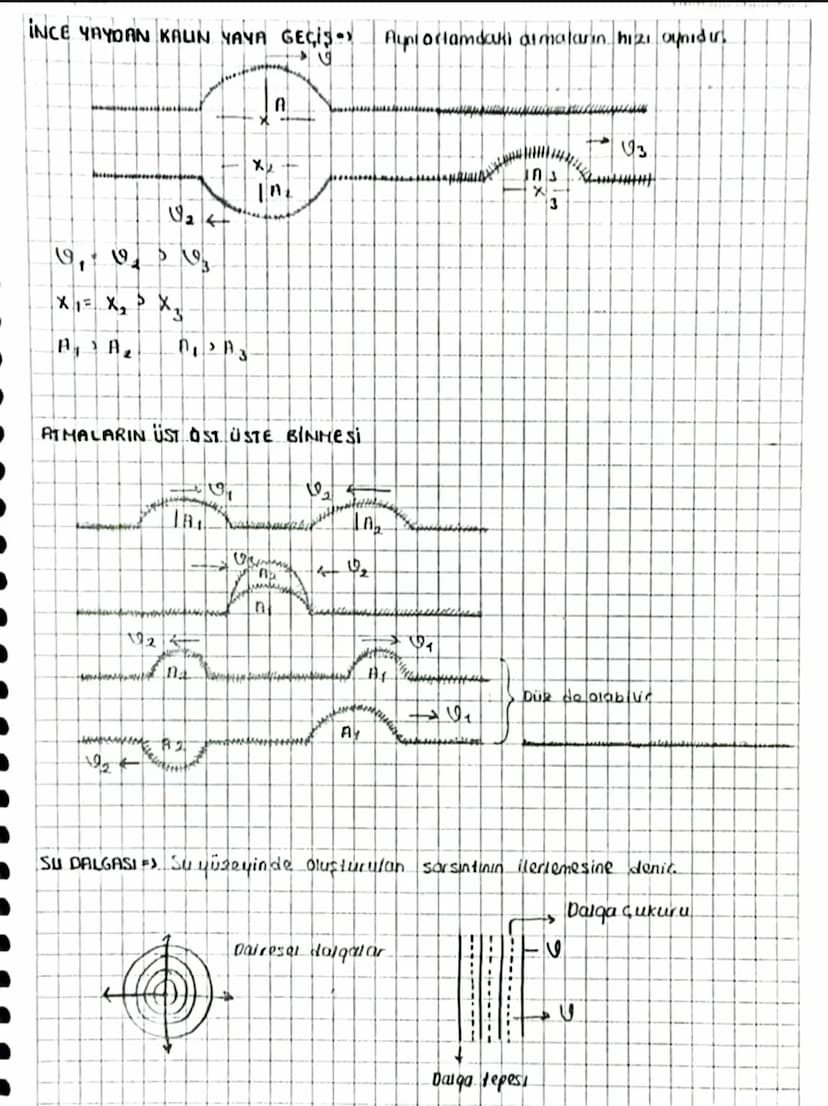 İNCE YAYDAN KALIN YAYA GEÇİŞ=> Aynı ortamdaki atmaların hızı aynıdır.
υ
A
x
x₂
A₂
υ₂
υ₃
A₃
x₃
υ₁ = υ₂ > υ₃
x₁ = x₂ > x₃
A₁ > A₂ A₁ > A₃
ATMALARIN ÜST ÜST ÜSTE BİNMESİ
υ₁ υ₂
A₁ A₂
υ₁ A₂ υ₂
A₁
υ₂ υ₁
A₂ A₁
Düz de olabilir
υ₁
A₂ A₁
υ₂
SU DALGASI=> Su yüzeyinde oluşturulan sarsıntının ilerlemesine denir.
Dalga çukuru
Dairesel dalgalar υ
υ
Dalga tepesi